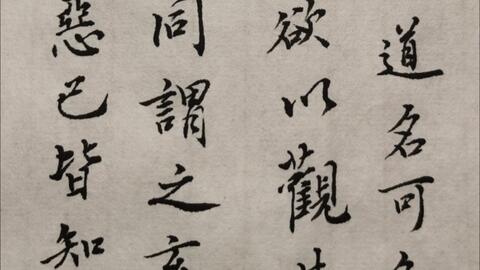 道名可
欲以觀
同謂之玄
惡已皆知